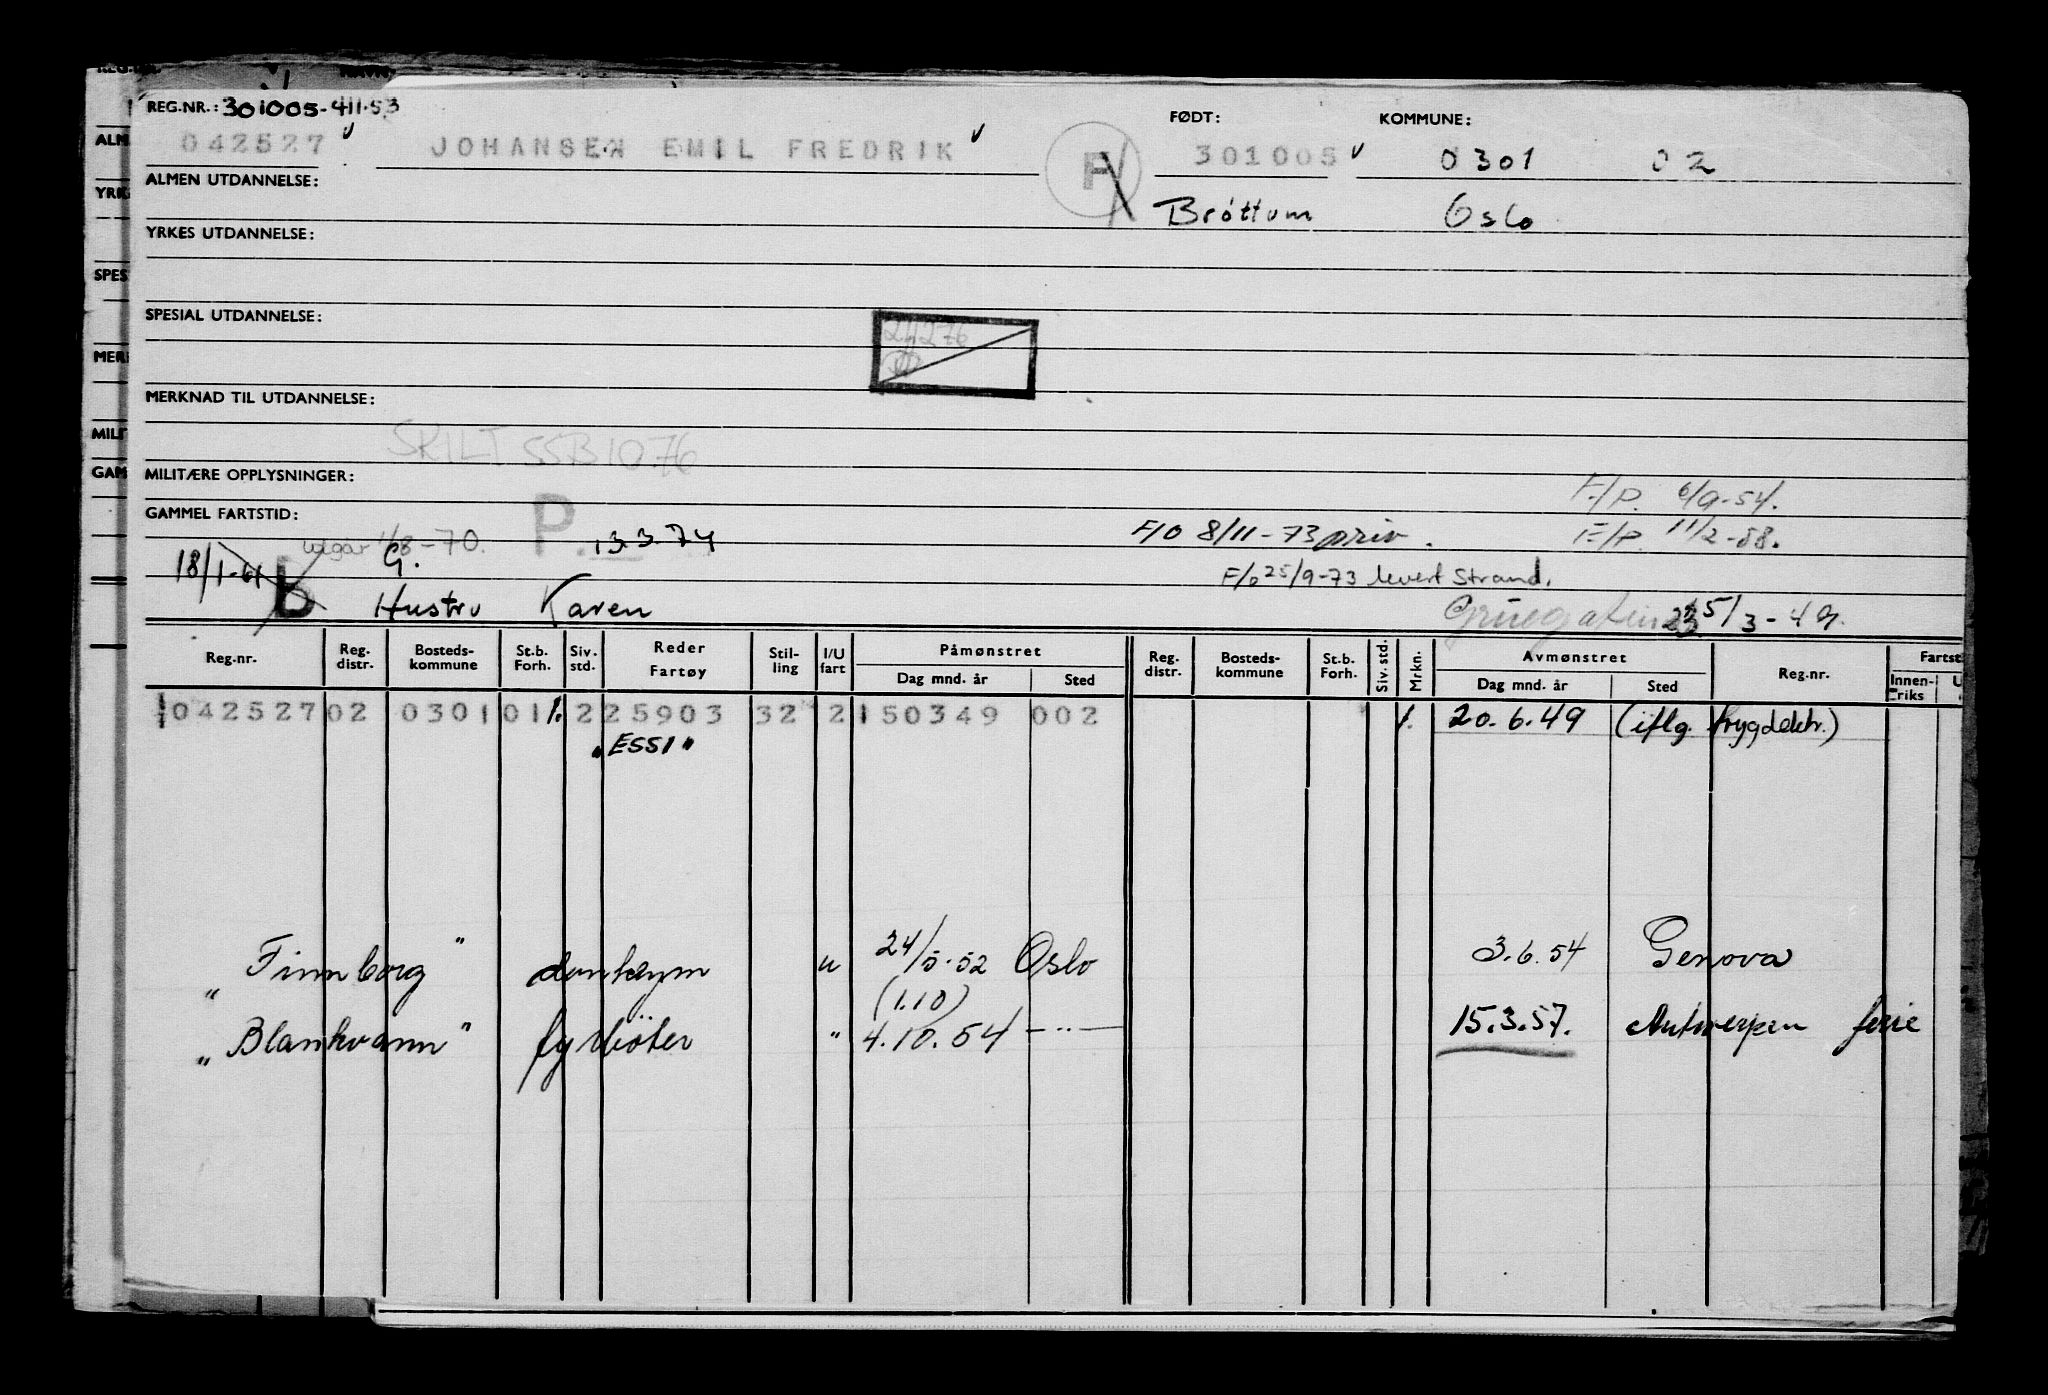 REG.NR.: 301005-411.53 FØDT: KOMMUNE:
042527 v JOHANSEN EMIL FREDRIK v F 301005 v 0301 02
ALMEN UTDANNELSE: Brøttum Oslo
YRKES UTDANNELSE:
SPESIAL UTDANNELSE:
MERKNAD TIL UTDANNELSE:
SKILT SSB 10.76
MILITÆRE OPPLYSNINGER:
F/P. 6/9-54.
GAMMEL FARTSTID: P.
utgår 1/8-70. 13.3.74 F/O 8/11-73 priv. F/P. 11/2-58.
18/1-61 b G. F/o 25/9-73 levert Strand.
Hustru Karen 25/3-49.
Reg.nr. Reg. distr. Bosteds-kommune St.b. Forh. Siv. std. Reder Fartøy Stil-ling I/U fart Påmønstret Dag mnd. år Sted Reg. distr. Bosteds-kommune St.b. Forh. Siv. std. Mrkn. Avmønstret Dag mnd. år Sted Reg.nr. Fartst Innen-riks U
042527 02 0301 01 1. 2 25903 32 2 150349 002 1. 20.6.49 (iflg. trygdektr.)
"ESSI"
"Finnborg" donkeym u 24/5-52 Oslo 3.6.54 Genova
(1.10)
"Blankvann" fyrbøter " 4.10.54 —"— 15.3.57. Antwerpen ferie